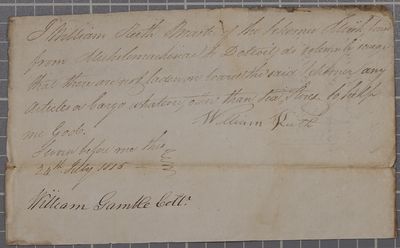 I William Keith Master of the Schooner
from Michilimackinac to Detroit do solemnly swear
that there are not laden on board the said Schooner any
Articles or Cargo whatever, other than Sea Stores. So help
me God.
Sworn before me this
24th July 1815
William Keith
William Gamble Collr.